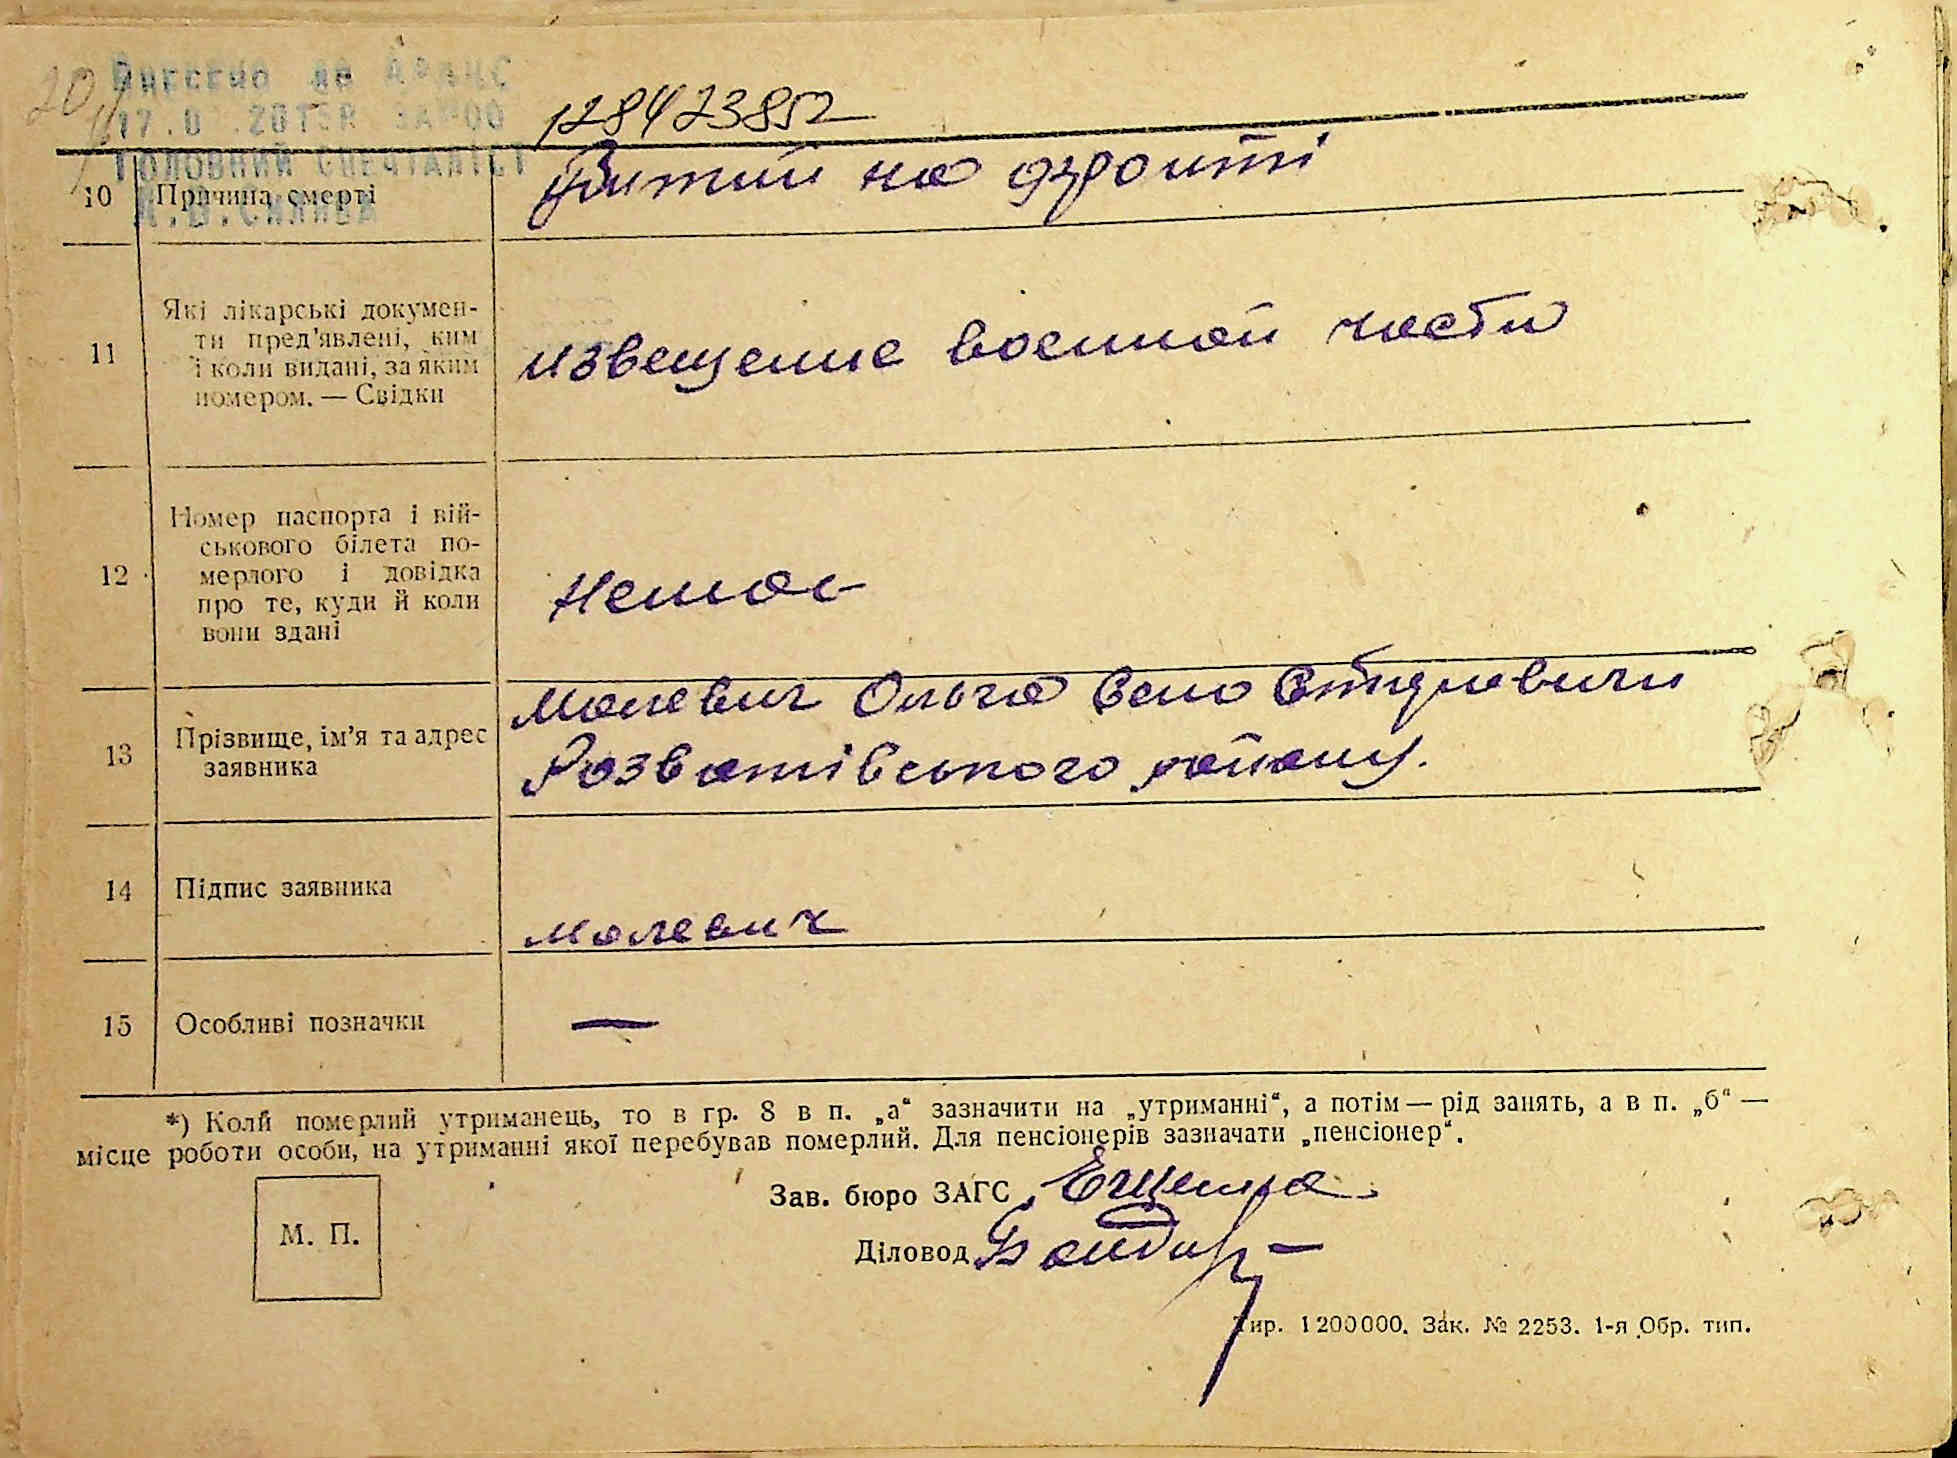 Внесено до ДРАЦС
ГОЛОВНИЙ СПЕЦІАЛІСТ
128423852
10 Причина смерті
Вбитий на фронті
11 Які лікарські докумен-
ти пред'явлені, ким
і коли видані, за яким
номером. — Свідки
извещение военной части
12 Номер паспорта і вій-
ськового білета по-
мерлого і довідка
про те, куди й коли
вони здані
Немає
13 Прізвище, ім'я та адрес
заявника
Малевич Ольга село
Розватівського району.
14 Підпис заявника
Малевич
15 Особливі позначки
—
*) Коли померлий утриманець, то в гр. 8 в п. „а“ зазначити на „утриманні“, а потім — рід занять, а в п. „б“ —
місце роботи особи, на утриманні якої перебував померлий. Для пенсіонерів зазначати „пенсіонер“.
М. П.
Зав. бюро ЗАГС
Діловод
Тир. 1200000. Зак. № 2253. 1-я Обр. тип.